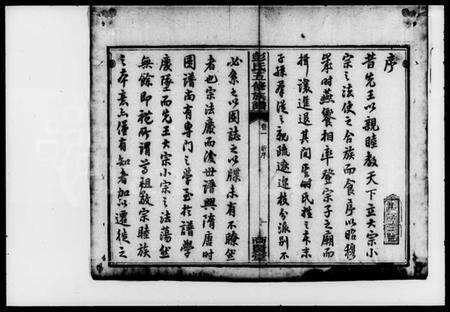 序
昔先王以親睦教天下立大宗小
宗之法使之合族而食序以昭穆
畧时燕饗相率登宗子之廟而
揖讓進退其間當时民於
子孫羣從之親疏遠邇枝分派别不
必系之以圖誌之以牒未有不瞭然
者也宗法廢而後世譜興隋唐时
圖譜尚有專門之學至於譜學
廢墜而先王大宗小宗之法蕩然
無餘即禮所謂尊祖敬宗睦族
之本意亦僅有知者加以遷徙之
彭氏五修族譜
卷一